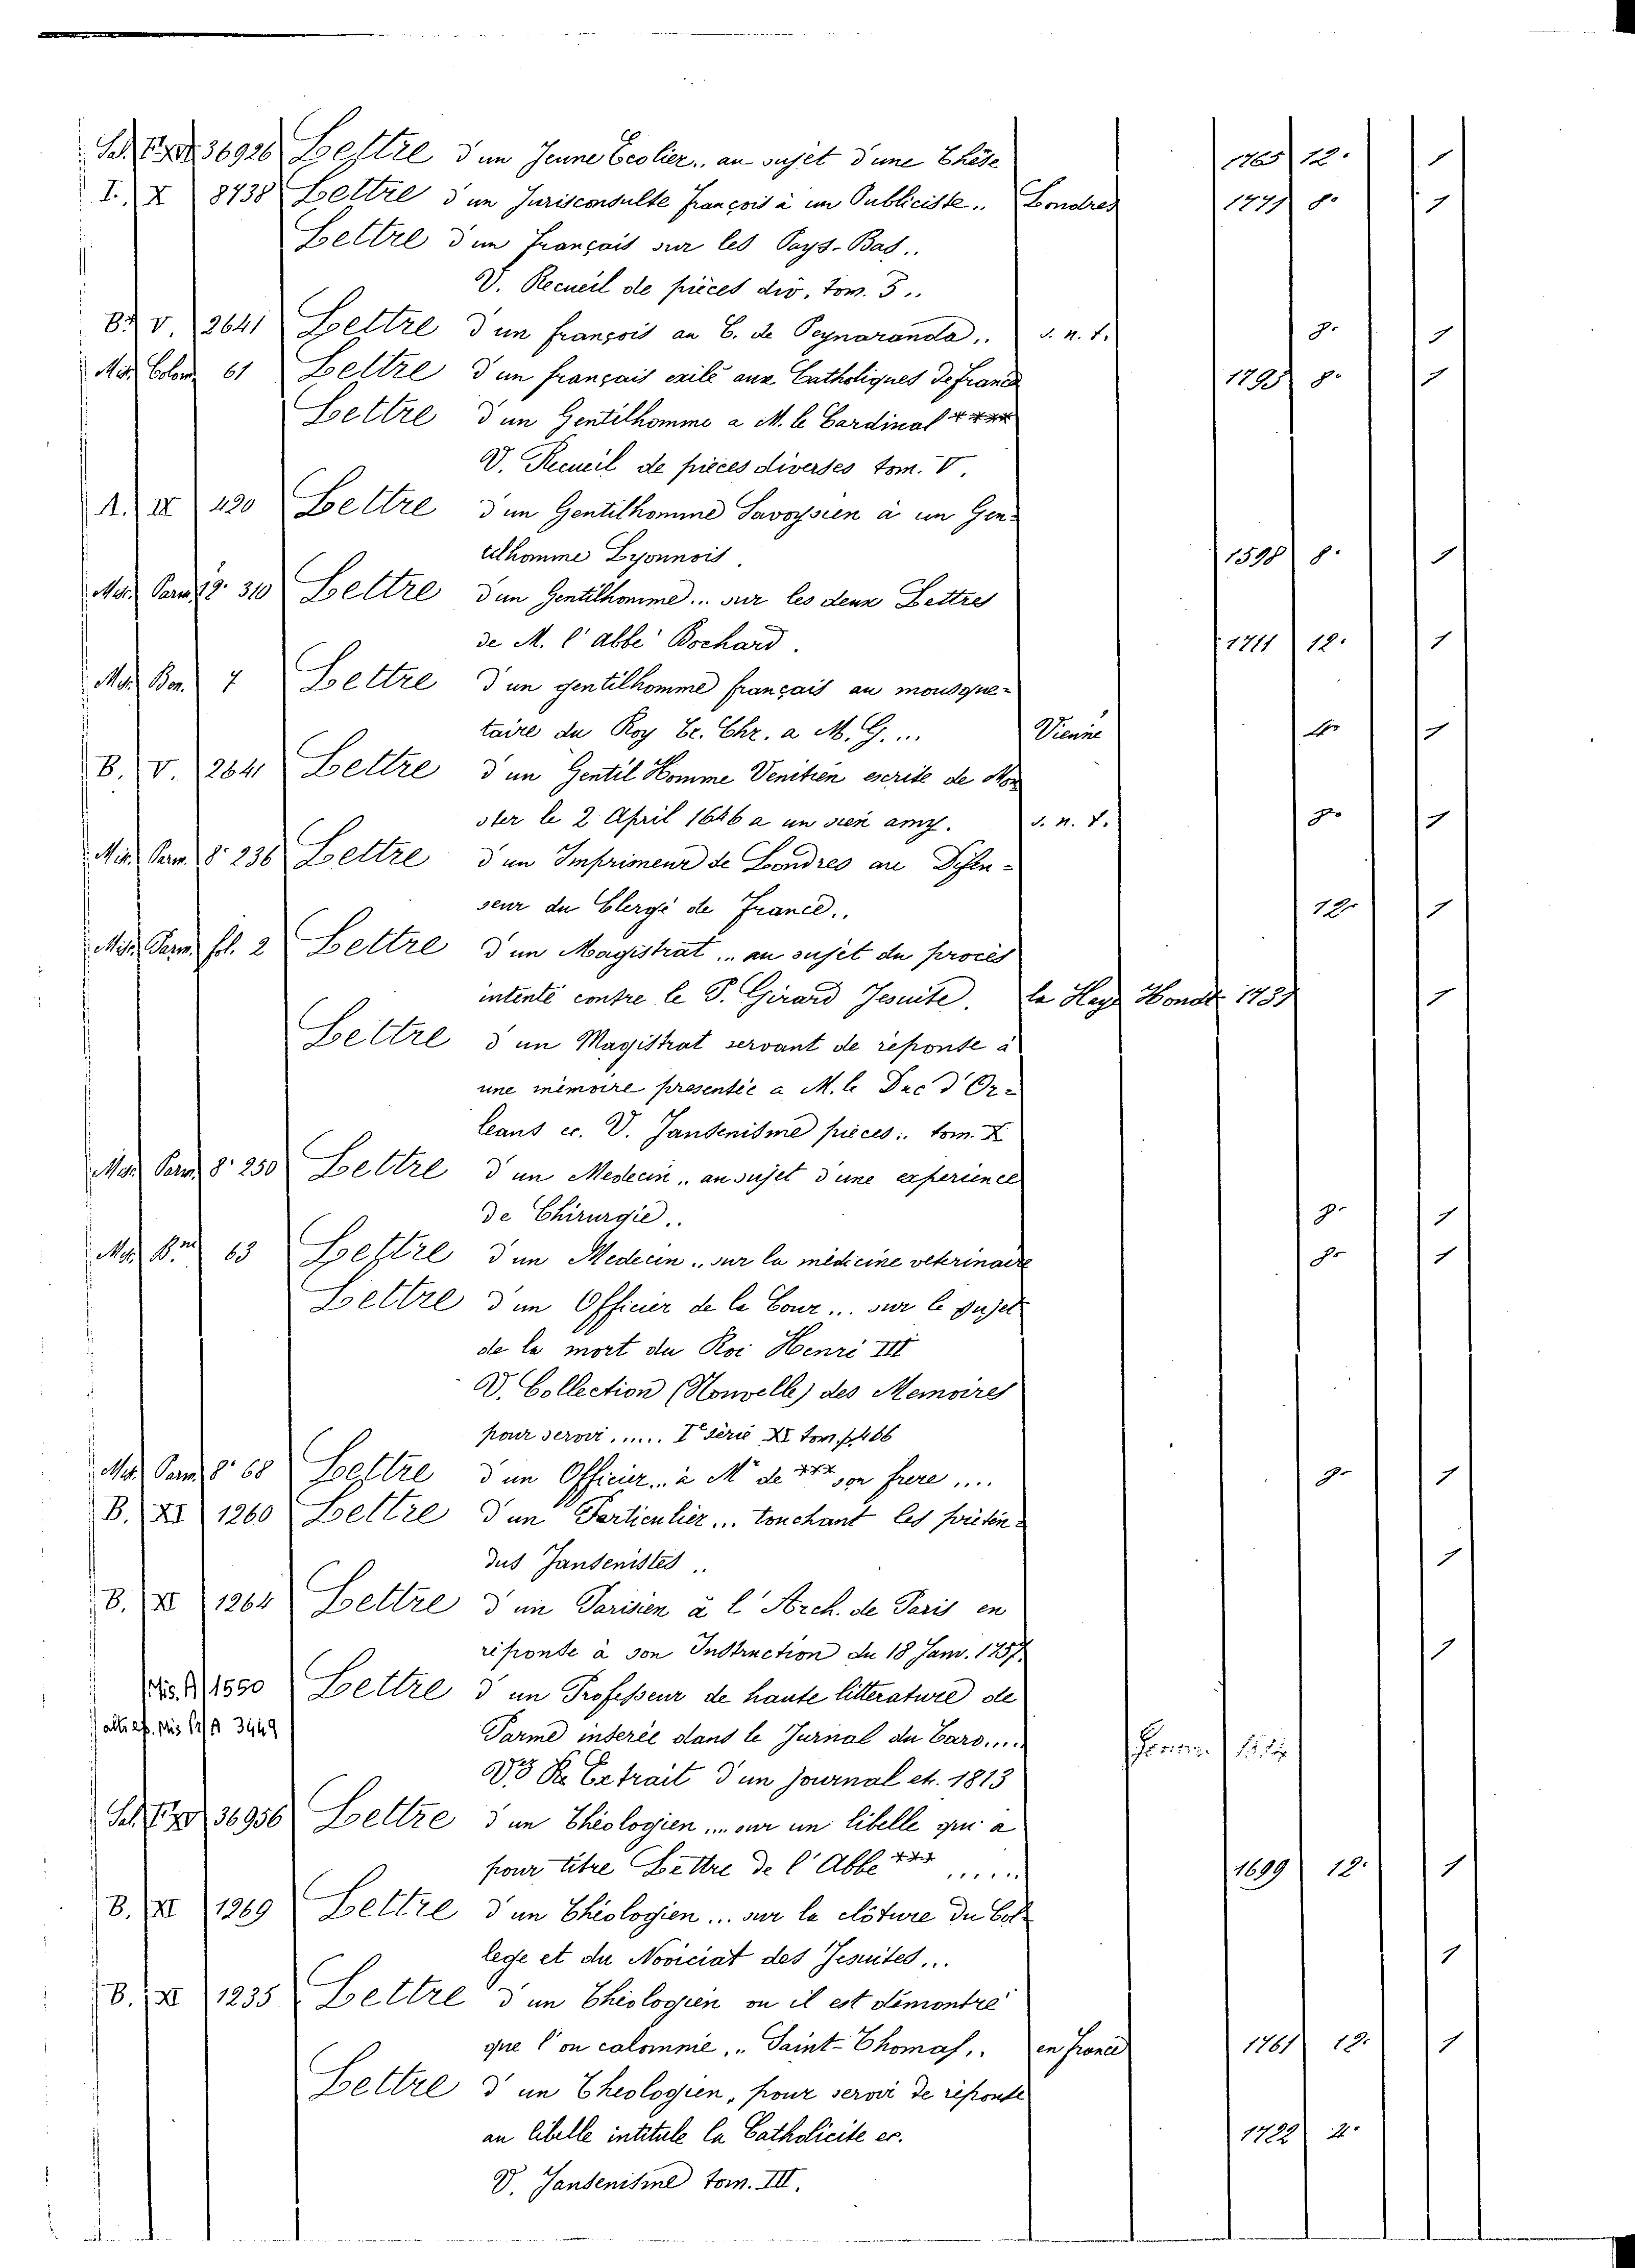 36926 Lettre d'un Jeune Ecolier.. au sujet d'une Thése 1765 12. 1
I. X 8738 Lettre d'un Jurisconsulte François à un Publiciste.. Londres 1771 8. 1
Lettre d'un Français sur les Pays-Bas..
V. Recueil de pièces div. tom. 5..
B. V. 2641 Lettre d'un françois au C. de Peynaranda.. s. n. t. 8. 1
Mis. Colom. 61 Lettre d'un français exilé aux Catholiques de france 1795 8. 1
Lettre d'un Gentilhomme a M. le Cardinal ****
V. Recueil de pièces diverses tom. V.
A. IX 420 Lettre d'un Gentilhomme Savoysien à un Gen-
tilhomme Lyonnois. 1598 8. 1
Mis. Parm. 12. 310 Lettre d'un Gentilhomme... sur les deux Lettres
de M. l'Abbé Bochard. 1711 12. 1
Mis. Bon. 7 Lettre d'un gentilhomme français au mousque-
taire du Roy Tr. Chr. a M. G.... Vienne 4. 1
B. V. 2641 Lettre d'un Gentil Homme Venitien escrite de Mon
ster le 2 April 1646 a un sien amy. s. n. t. 8. 1
Mis. Parm. 8. 236 Lettre d'un Imprimeur de Londres au Défen-
seur du Clergé de France.. 12. 1
Mis. Parm. fol. 2 Lettre d'un Magistrat... au sujet du procès
intenté contre le P. Girard Jesuite. la Haye Hondt 1731 1
Lettre d'un Magistrat servant de réponse à
une mémoire presentée a M. le Duc d'Or-
leans ec. V. Jansenisme pièces.. tom. X
Mis. Parm. 8. 250 Lettre d'un Medecin.. au sujet d'une experience
de Chirurgie.. 8. 1
Mis. 63 Lettre d'un Medecin.. sur la médicine veterinaire 8. 1
Lettre d'un Officier de la Cour... sur le sujet
de la mort du Roi Henri III
V. Collection (Nouvelle) des Memoires
pour servir...... I série XI tom. p. 466
Mis. Parm. 8. 68 Lettre d'un Officier... à Mr. de *** son frere.... 8. 1
B. XI 1260 Lettre d'un Particulier... touchant les préten-
dus Jansenistes.. 1
B. XI 1264 Lettre d'un Parisien à l'Arch. de Paris en
réponse à son Instruction du 18 Janv. 1757. 1
Mis. 1550 Lettre d'un Professeur de haute litterature de
altr. es. Mis. 3449 Parme inserée dans le Jurnal du Taro....
V. Extrait d'un journal et. 1813
36936 Lettre d'un Théologien... sur un libelle qui a
pour titre Lettre de l'Abbé *** ..... 1699 12. 1
B. XI 1269 Lettre d'un Théologien... sur la clôture du Col-
lege et du Noviciat des Jesuites... 1
B. XI 1235 Lettre d'un Théologien ou il est démontré
que l'on calomnie... Saint-Thomas.. en France 1761 12. 1
Lettre d'un Theologien, pour servir de réponse
au libelle intitule la Catholicite ec. 1722 4.
V. Jansenisme tom. III.